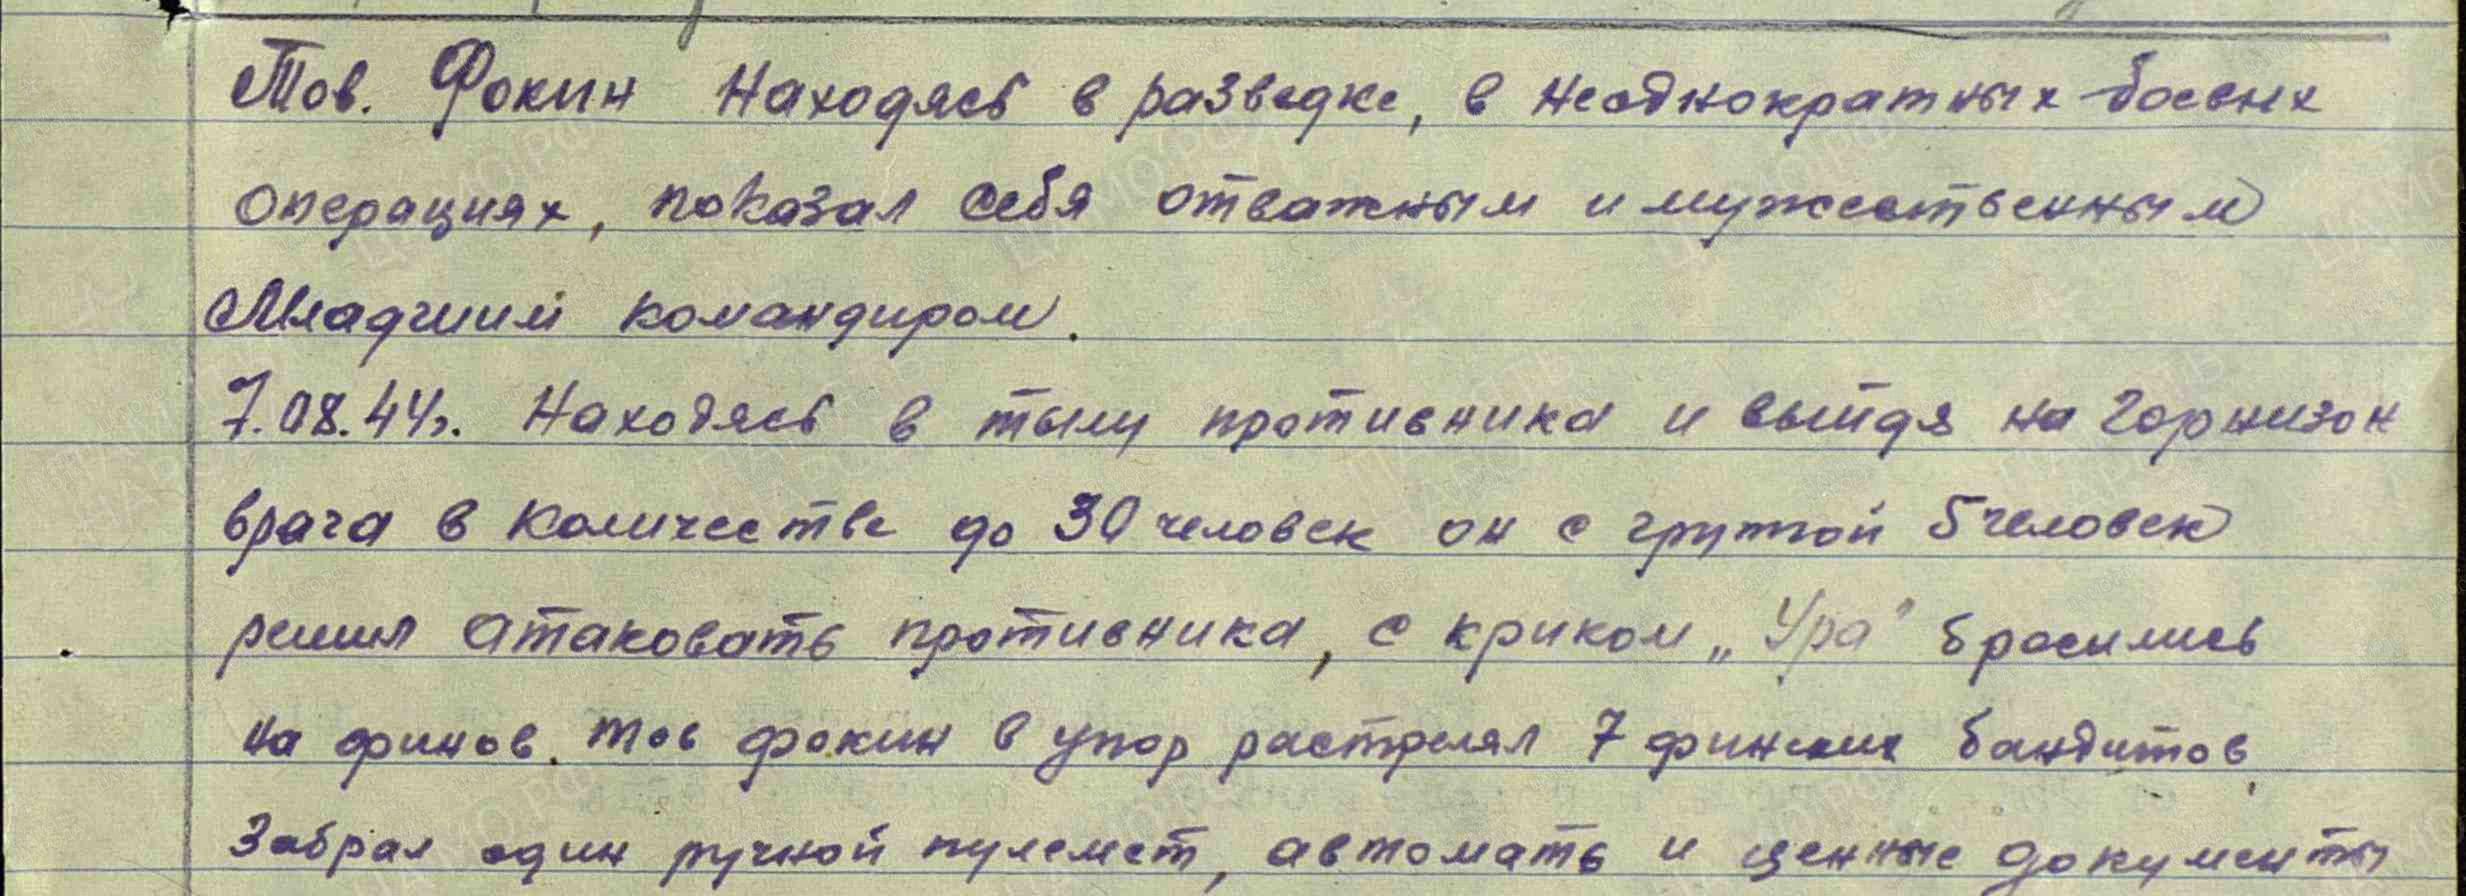 Тов. Фокин Находясь в разведке, в неоднократных боевых
операциях, показал себя отважным и мужественным
Младшим командиром.
7.08.44г. Находясь в тылу противника и выйдя на горнизон
врага в количестве до 30 человек он с групой 5 человек
решил атаковать противника, с криком „Ура" бросились
на финов. тов фокин в упор растрелял 7 финских бандитов,
Забрал один ручной пулемет, автомать и ценные документы